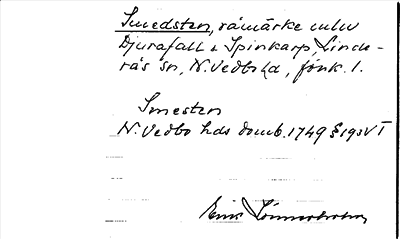 Smedsten, råmärke mellan
Djurafall & Spinkarp, Linde-
rås sn, N. Vedbo hd, fönk. l.
Smesten
N. Vedbo hds domb. 1749 § 193 VT
Erik